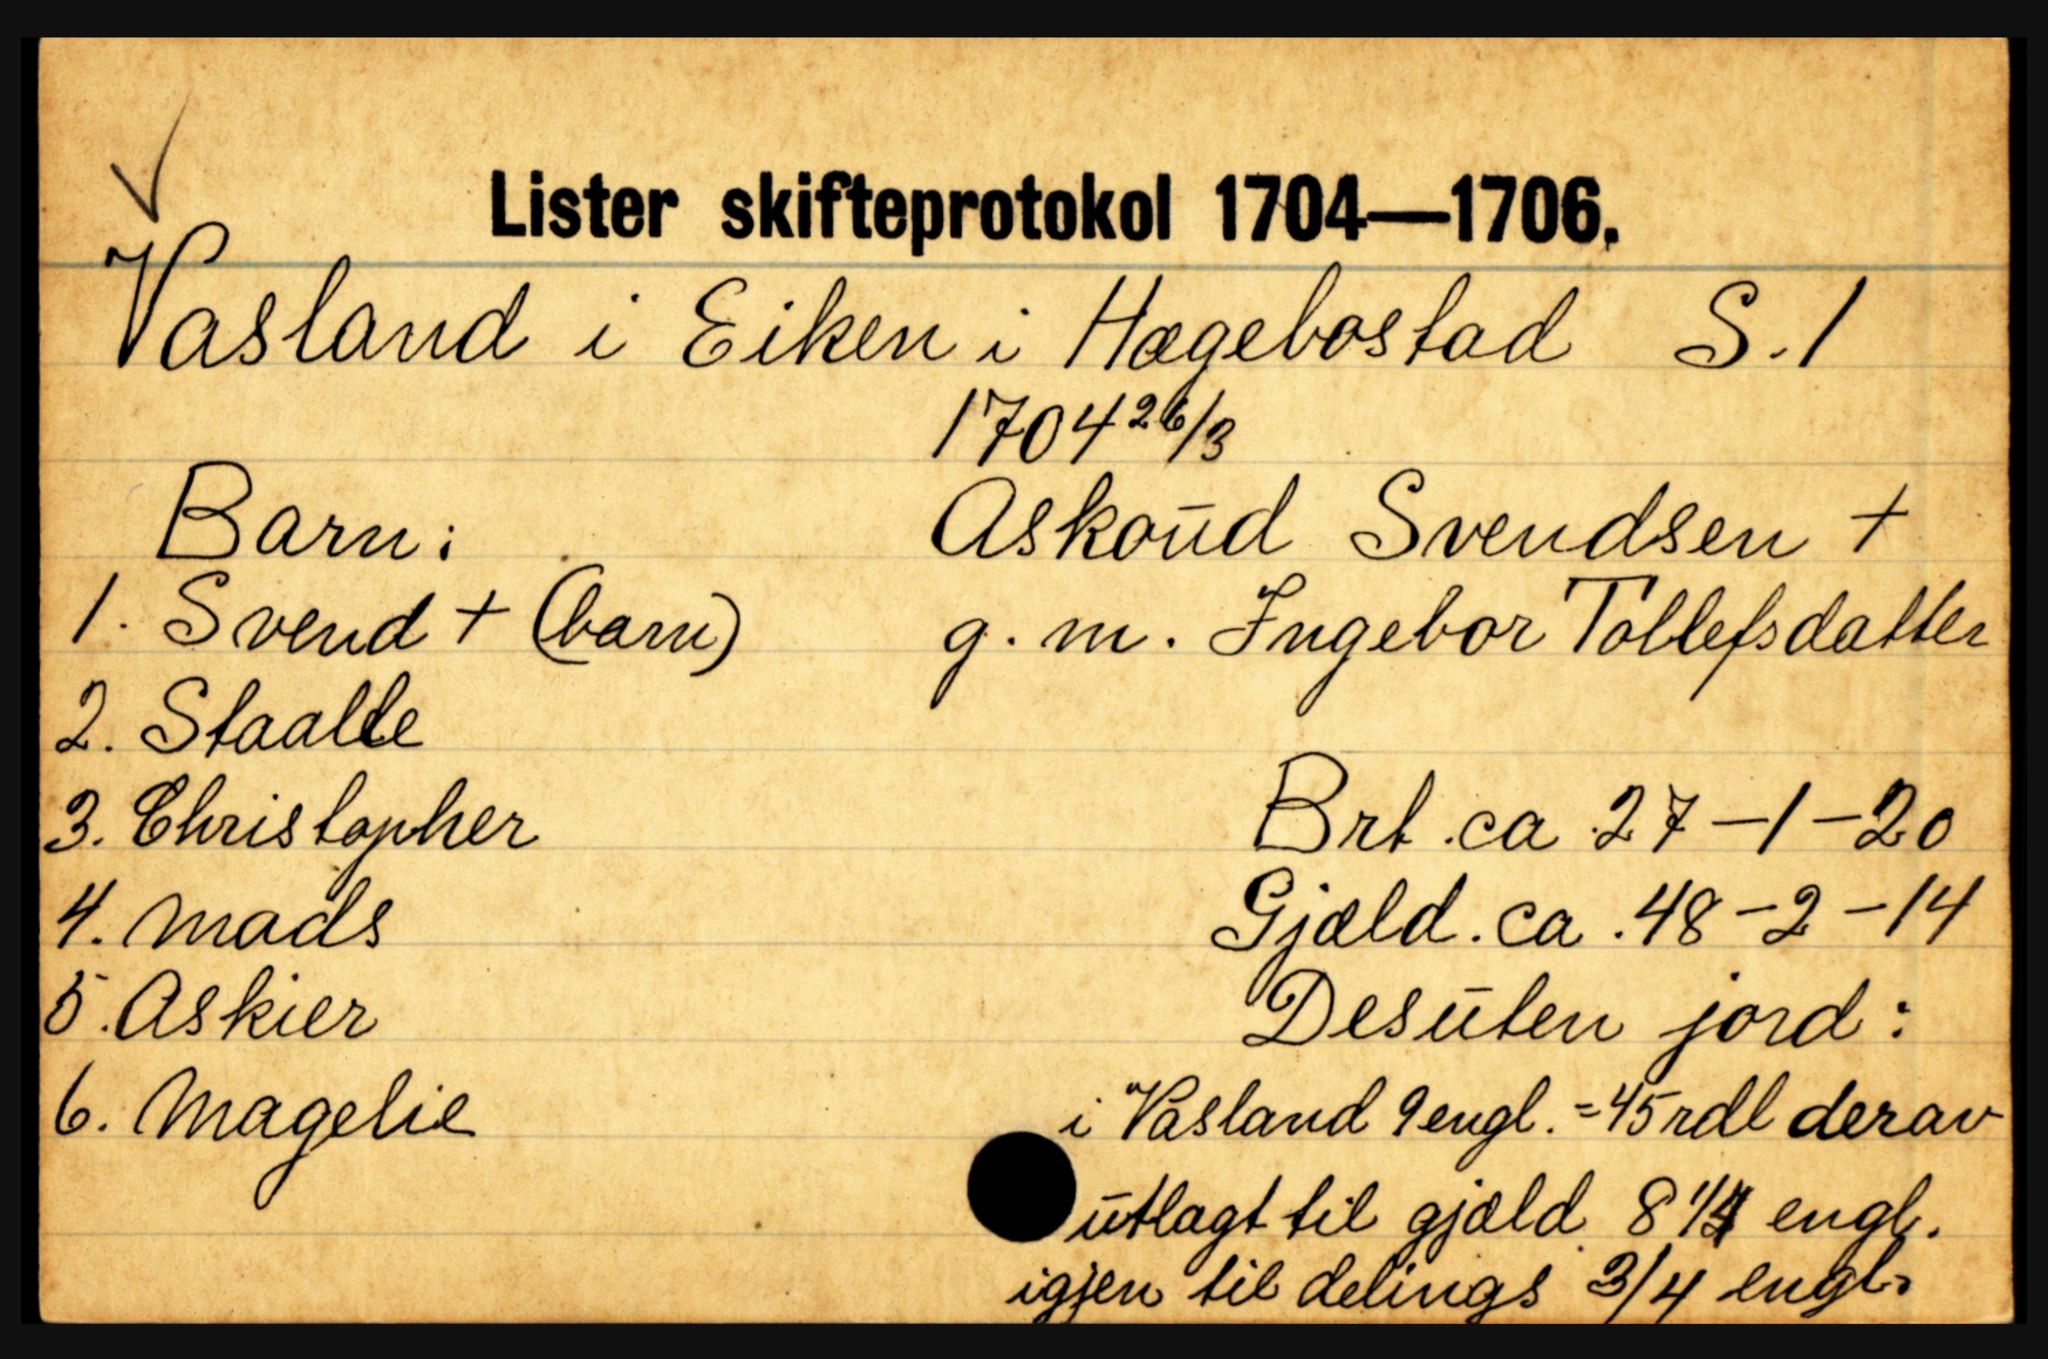 Lister skifteprotokol 1704—1706.
Vasland i Eiken i Hægebostad S. 1
1704 26/3
Askoūd Svendsen +
g. m. Ingebor Tollefsdatter
Barn:
1. Svend + (barn)
2. Staalle
3. Christopher
4. Mads
5. Askier
6. Magelie
Brt. ca. 27 – 1 – 20
Gjæld. ca. 48 – 2 – 14
Desūten jord:
i Vasland 9 engl. = 45 rdl derav
ūtlagt til gjæld 8 1/4 engl.
igjen til delings 3/4 engl.